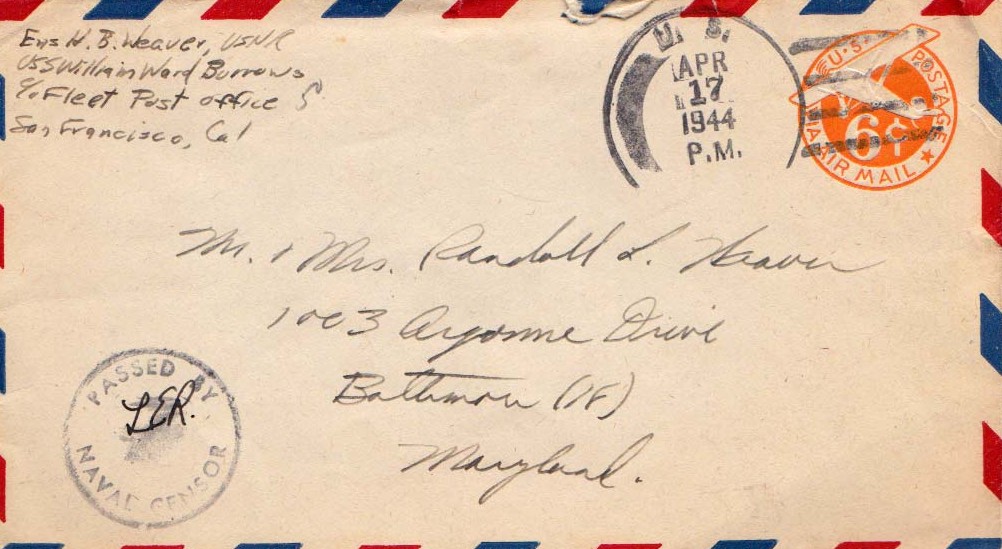 Ens H. B. Weaver, USNR
USS William Ward Burrows
℅ Fleet Post office
San Francisco, Cal
U. S.
APR
17
1944
P.M.
U.S. POSTAGE
6¢
VIA AIR MAIL
Mr. & Mrs. Randall L. Weaver
1003 Argonne Drive
Baltimore (18)
Maryland.
PASSED BY
LER.
NAVAL CENSOR